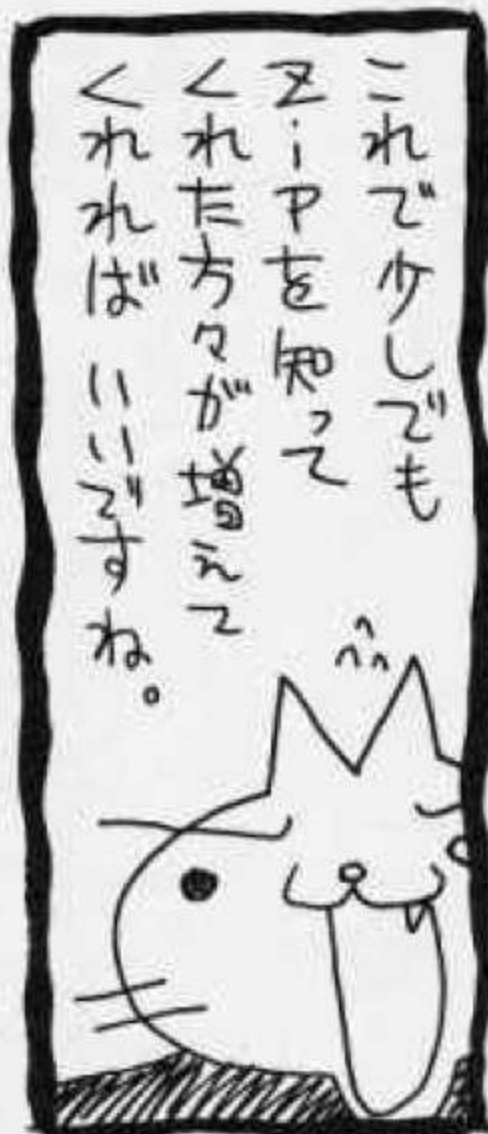 これで少しでも
ZiPを知って
くれた方々が増えて
くれれば いいですね。